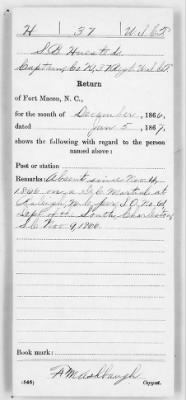 H 37 U.S.C.T.
S. B. Huested
Captain, Co. H, 37 Reg't U.S.C.T.
Return
of Fort Macon, N. C.,
for the month of December, 1866,
dated Jan 5, 1867,
shows the following with regard to the person
named above:
Post or station
Remarks: Absent since Nov. 14
1866 on a G.C. Martial at
Raleigh, N.C. per S.O. No. 61,
Dept of the South, Charleston
S.C. Nov. 9, 1866.
Book mark:
A M Ashbaugh
(546) Copyist.